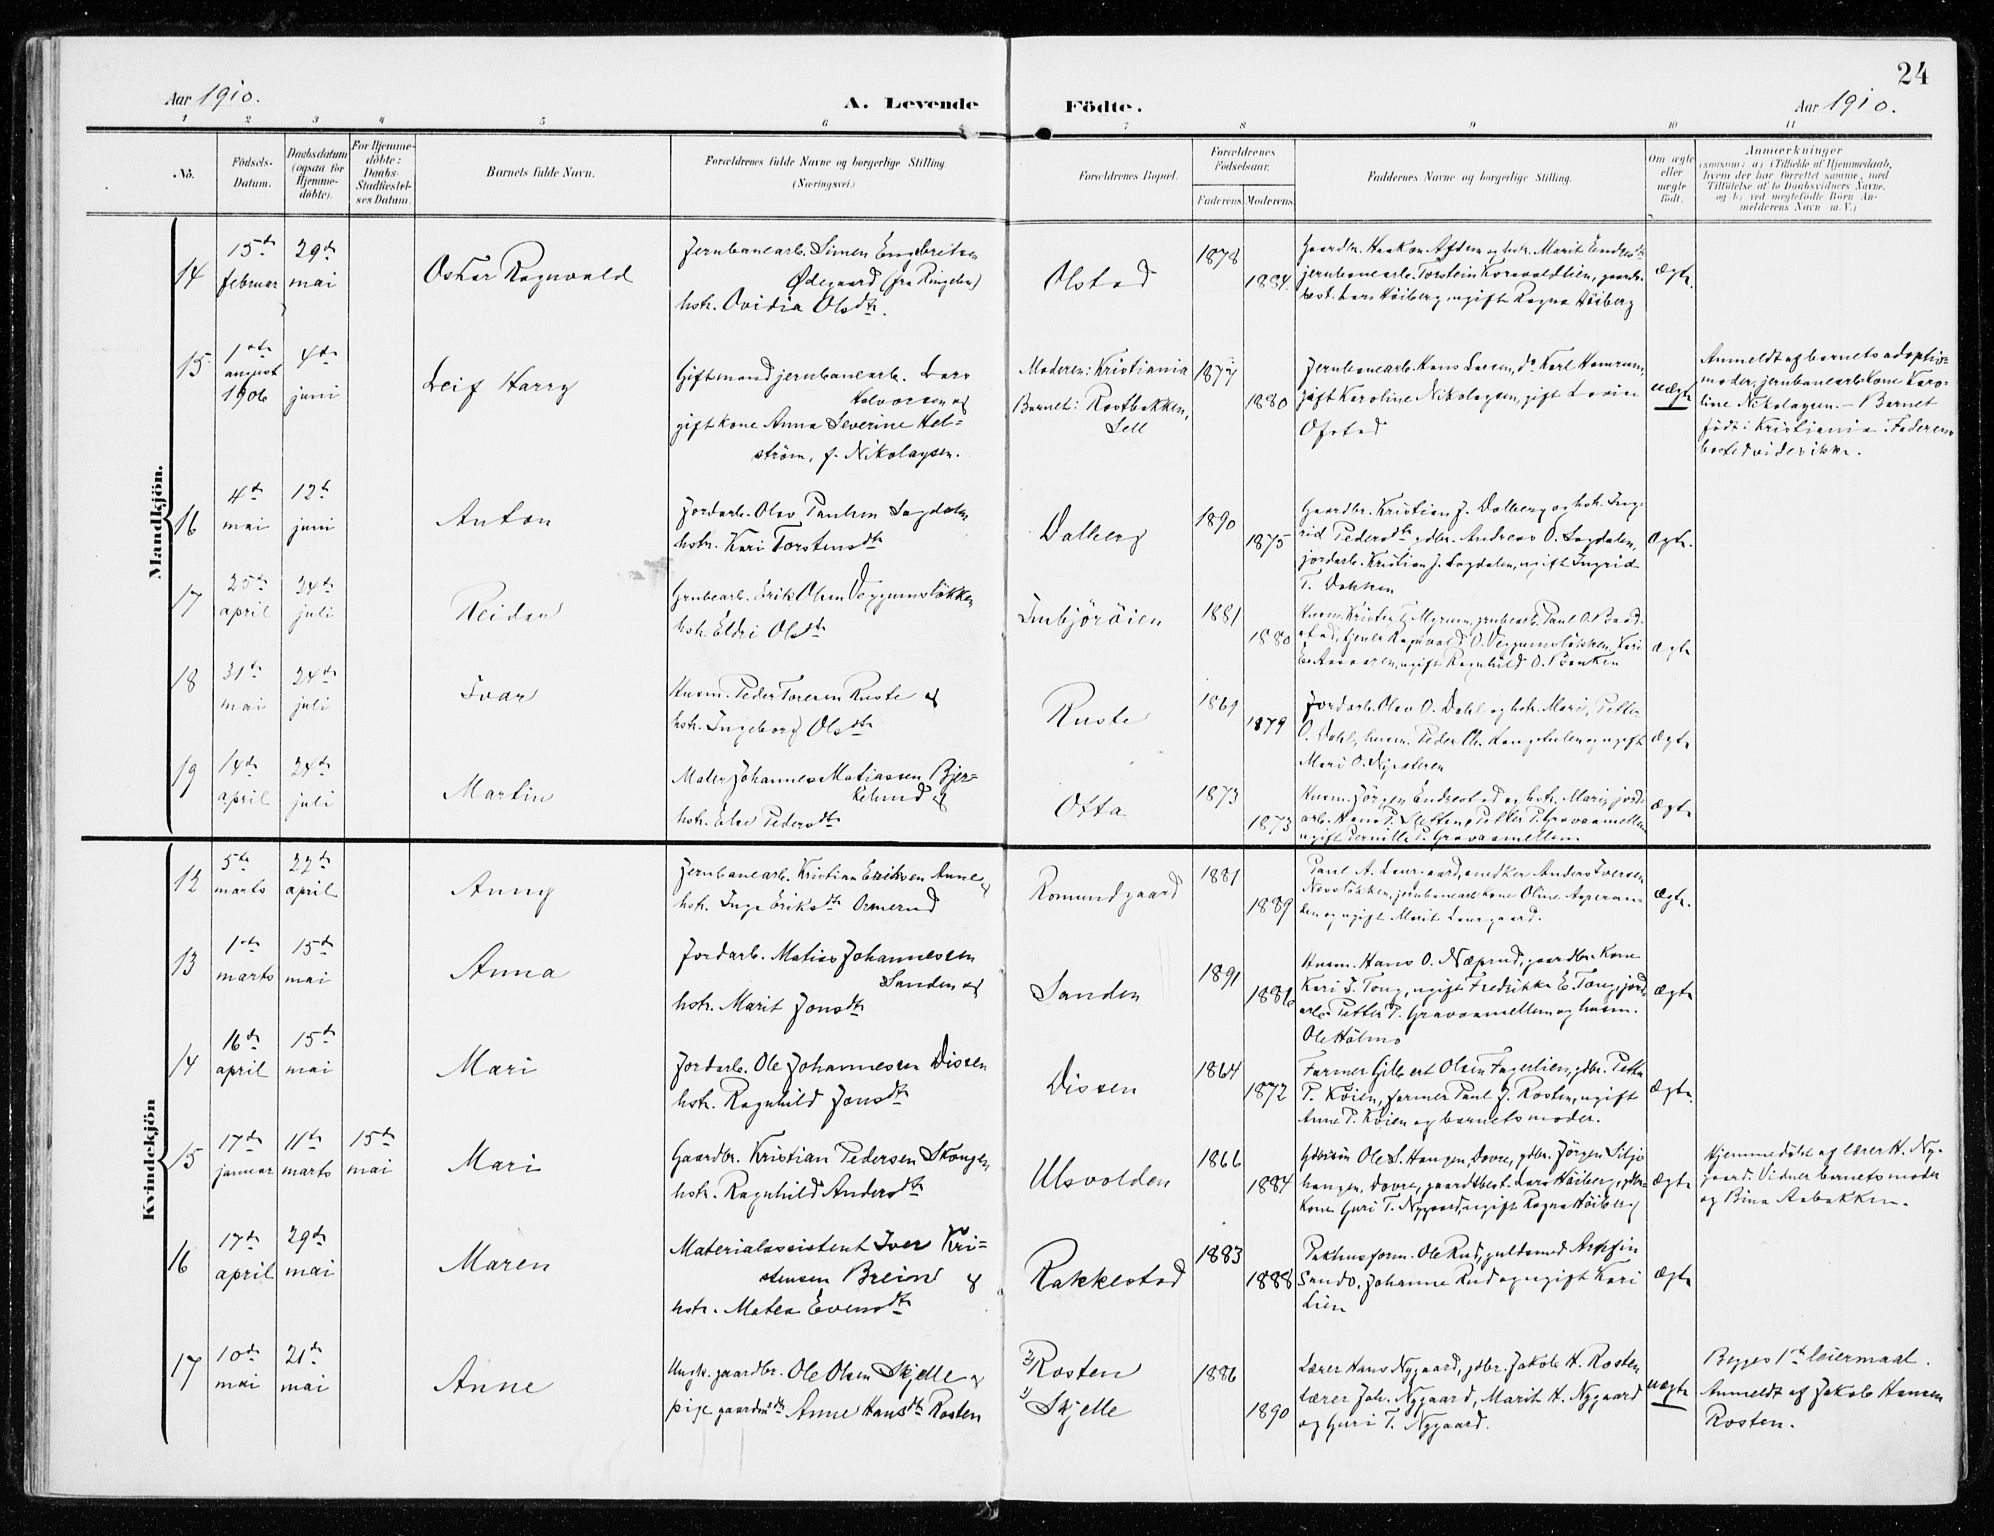 24
Aar 1910.
A. Levende
Födte.
Aar 1910.
1 2 3 4 5 6 7 8 9 10 11
No.
Födsels-
Datum.
Daabsdatum
(ogsaa for
Hjemme-
döbte).
For Hjemme-
döbte:
Daabs-
Stadfæstel-
ses Datum.
Barnets fulde Navn.
Forældrenes fulde Navne og borgerlige Stilling.
(Næringsvei.)
Forældrenes Bopæl.
Forældrenes
Födselsaar.
Faderens
Moderens
Faddernes Navne og borgerlige Stilling.
Om ægte
eller
uægte
födt.
Anmærkninger
(saasom: a) i Tilfælde af Hjemmedaab,
hvem der har forrettet samme, med
Tilföielse af to Daabsvidners Navne,
og b) ved uægtefödte Börn An-
melderens Navn m. V.)
Mandkjön.
14
15de
februar
29de
mai
Oskar Ragnvald
Jernbanearb. Simen Engebretsen
Ødegaard (fra Ringebu)
hstr. Ovidia Olsdtr.
Olstad
1878
1884.
Gaardbr. Haakon Afdem og hstr. Marit Endresdtr
jernbanearb. Torstein Korsvoldlien, gaardb-
best. Lars Höiberg, ugift Ragna Höiberg
ægte.
15.
1ste
august
1906
4de
juni
Leif Harry
Gift mand jernbanearb. Lars
Halvorsen og
gift kone Anna Severine Hel=
ström, f. Nikolaysen.
Moderen: Kristiania
Barnet: Rostbakken,
Sell
1877
1880
Jernbanearb. Hans Larsen, do Karl Hamrum,
gift Karoline Nikolaysen, gift Lovise
Ofstad
uægte
Anmeldt af barnets adoptiv=
moder, jernbanearb.kone Karo-
line Nikolaysen. - Barnet
født i Kristiania. Faderens
bosted vides ikke.
16
4de
mai
12te
juni
Anton
Jordarb. Olav Paulsen Sagdalen
hstr. Kari Torstensdtr
Dalberg
1890
1875
Gaardbr. Kristian J. Dalberg og hstr. Ing-
rid Pedersdtr, gdbr. Andreas O. Sagdalen,
jordarb. Kristian J. Sagdalen, ugift Ingrid
T. Dokken
ægte.
17
25de
april
24de
juli
Reidar
Grubearb. Erik Olsen Veggumsløkken
hstr. Eldri Olsdtr
1881
1880
O. Veggumsløkken, Kari
ugift Ragnhild O. Bakken
ægte
18
31te
mai
24de
juli
Ivar
Husm. Peder Toresen Ruste og
hstr. Ingeborg Olsdtr
Ruste
1869
1879
Jordarb. Olav O. Dahl og hstr. Mari, Petter
O. Dahl, husm. Peder og ugift
Mari O. Nysteren
ægte
19
14de
april
24de
juli
Martin
Maler Johannes Matiassen Bjer=
kelund og
hstr. Else Pedersdtr
Otta
1873
1873
Husm. Jörgen Endrestad og hstr. Mari, jord-
arb. Hans P. Sletten, Petter P. Gravaamellem,
ugift Pernille P. Gravaamellem.
ægte
Kvindekjön
12
5te
marts
22de
april
Anny
Jernbanearb. Kristian Eriksen Aune og
hstr. Inga Eriksdtr Ormerud
Romundgaard
1881
1889
Paul A. Laurgaard, snedker Anders Iversen
Næsløkken, jernbanearb.kone Oline Asperan-
den og ugift Marit Laurgaard.
ægte.
13
1ste
marts
15de
mai
Anna
Jordarb. Matias Johannessen
Sanden og
hstr. Marit Jonsdtr
Sanden
1891
1886
Husm. Hans O. Næprud, gaardbr. kone
Kari I. Tong, ugift Fredrikke E. Tong, jord-
arb. Petter P. Gravaamellem og husm.
Ole Hölmo
ægte
14
16de
april
15de
mai
Mari
Jordarb. Ole Johannessen Dissen
hstr. Ragnhild Jonsdtr
Dissen
1864
1872
Farmer Gilbert Olsen Fagerlien, gdbr. Petter
P. Kõien, farmer Paul J. Rosten, ugift
Anne P. Kõien og barnets moder.
ægte.
15
17de
januar
11te
marts
15de
mai
Mari
Gaardbr. Kristian Pedersen Skougen
hstr. Ragnhild Andersdtr
Ulsvolden
1866
1884
Ole S. Haugen, Dovre, gdbr. Jörgen Siljo
haugen, Dovre, gaardbest. Lars Höiberg, gdbr-
kone Guri T. Nygaard, ugift Ragna Höiberg
ægte
Hjemmedøbt af lærer H. Ny-
gaard. Vidner barnets moder
og Bina Aabakken.
16
17de
april
29de
mai
Maren
Materialassistent Iver Kri=
stensen Breivd og
hstr. Matea Evensdtr
Rakkestad
1883
1888
Pakhusform. Ole Rud, guldsmed Arnfin
Sando, Johanne Rud og ugift Kari
Lien
ægte
17
10de
mai
21de
mai
Anne
Ungk. gaardbr. Ole Olsen Skjelle og
pige gaardmdtr Anne Hansdtr Rosten
2) Rosten
1) Skjelle
1886
1890
Lærer Hans Nygaard, gdbr. Jakob H. Rosten
lærer Joh. Nygaard, Marit H. Nygaard
og Guri T. Nygaard.
uægte
Begges 1ste leiermaal.
Anmeldt af Jakob Hansen
Rosten.